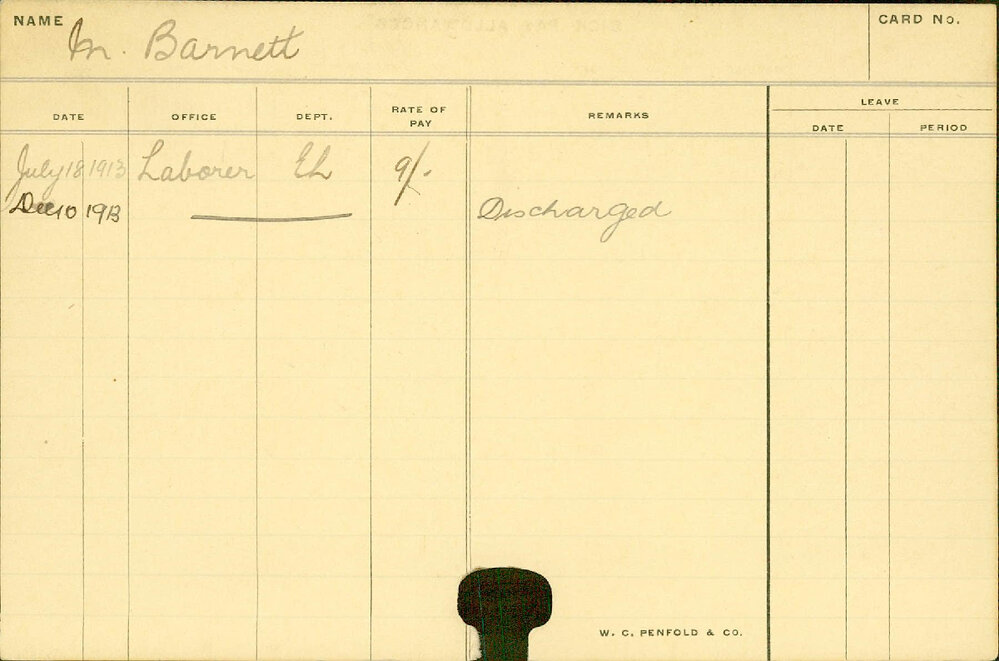 NAME M. Barnett CARD No.
DATE OFFICE DEPT. RATE OF PAY REMARKS LEAVE
DATE PERIOD
July 18 1913 Laborer EL 9/-
Dec 10 1913 Discharged
W. C. PENFOLD & CO.